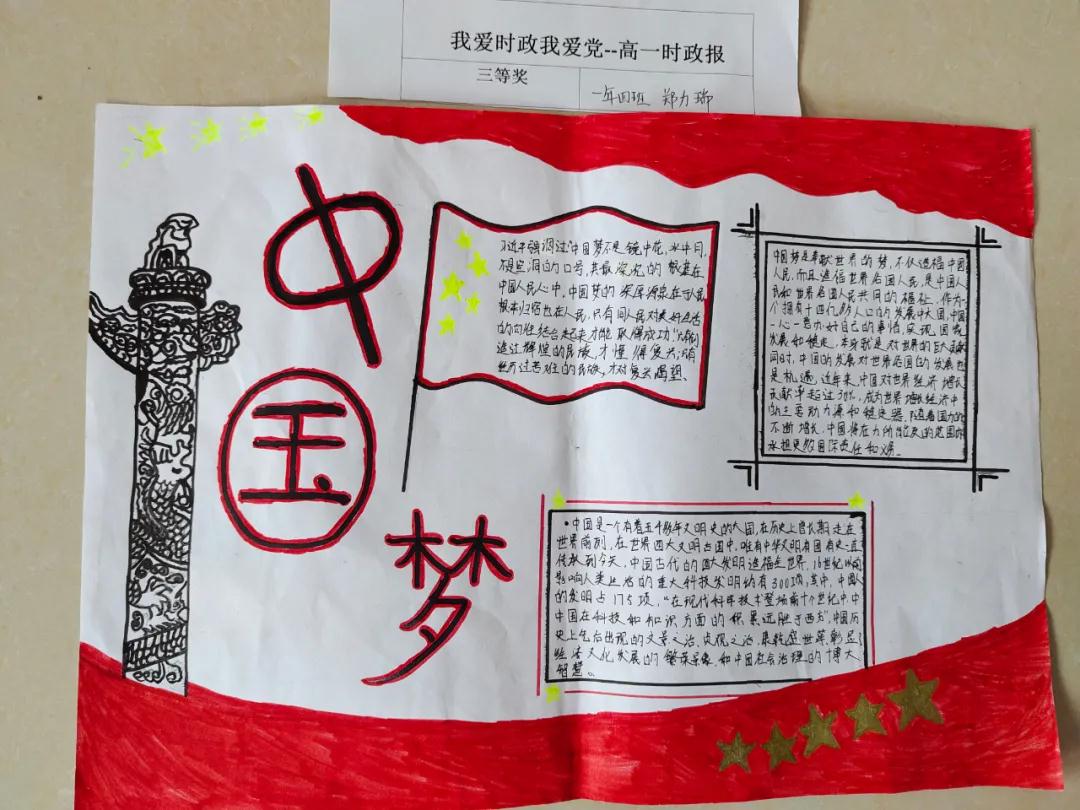 我爱时政我爱党--高一时政报
三等奖
一年四班 郑力瑞
中
国
梦
习近平强调过"中国梦不是镜中花,水中月,
不是空洞的口号,其最深沉的根基在
中国人民心中,中国梦的深厚源泉在于人民
根本归宿也在人民,只有同人民对美好生活
的向往结合起来才能取得成功."只有创
造过辉煌的民族,才懂得复兴;没有
经历过苦难的民族,才对复兴渴望。
中国梦是奉献世界的梦,不仅造福中国
人民,而且造福世界各国人民,是中国人
民和世界各国人民共同的福祉,作为一
个拥有十四亿多人口的发展中大国,中国
一心一意办好自己的事情,实现国家
发展和稳定,本身就是对世界的巨大贡献
同时,中国的发展对世界各国的发展也
是机遇,近年来,中国对世界经济增长
贡献率超过30%,成为世界增长经济中
的主要动力源和稳定器,随着国力的
不断增长,中国将在力所能及的范围内
承担更多国际责任和义务。
•中国是一个有着五千多年文明史的大国,在历史上曾长期走在
世界前列,在世界四大文明古国中,唯有中华文明有国有史一直
传承到今天,中国古代的四大发明造福全世界,16世纪以前
影响人类生活的重大科技发明约有300项,其中,中国人
的发明占175项,"在现代科学技术登场前十个世纪中,中
中国在科技和知识方面的积累远胜于西方",中国历
史上先后出现的文景之治,贞观之治,康乾盛世等,彰显
经济文化发展的繁荣景象,和中国社会治理的博大
智慧。